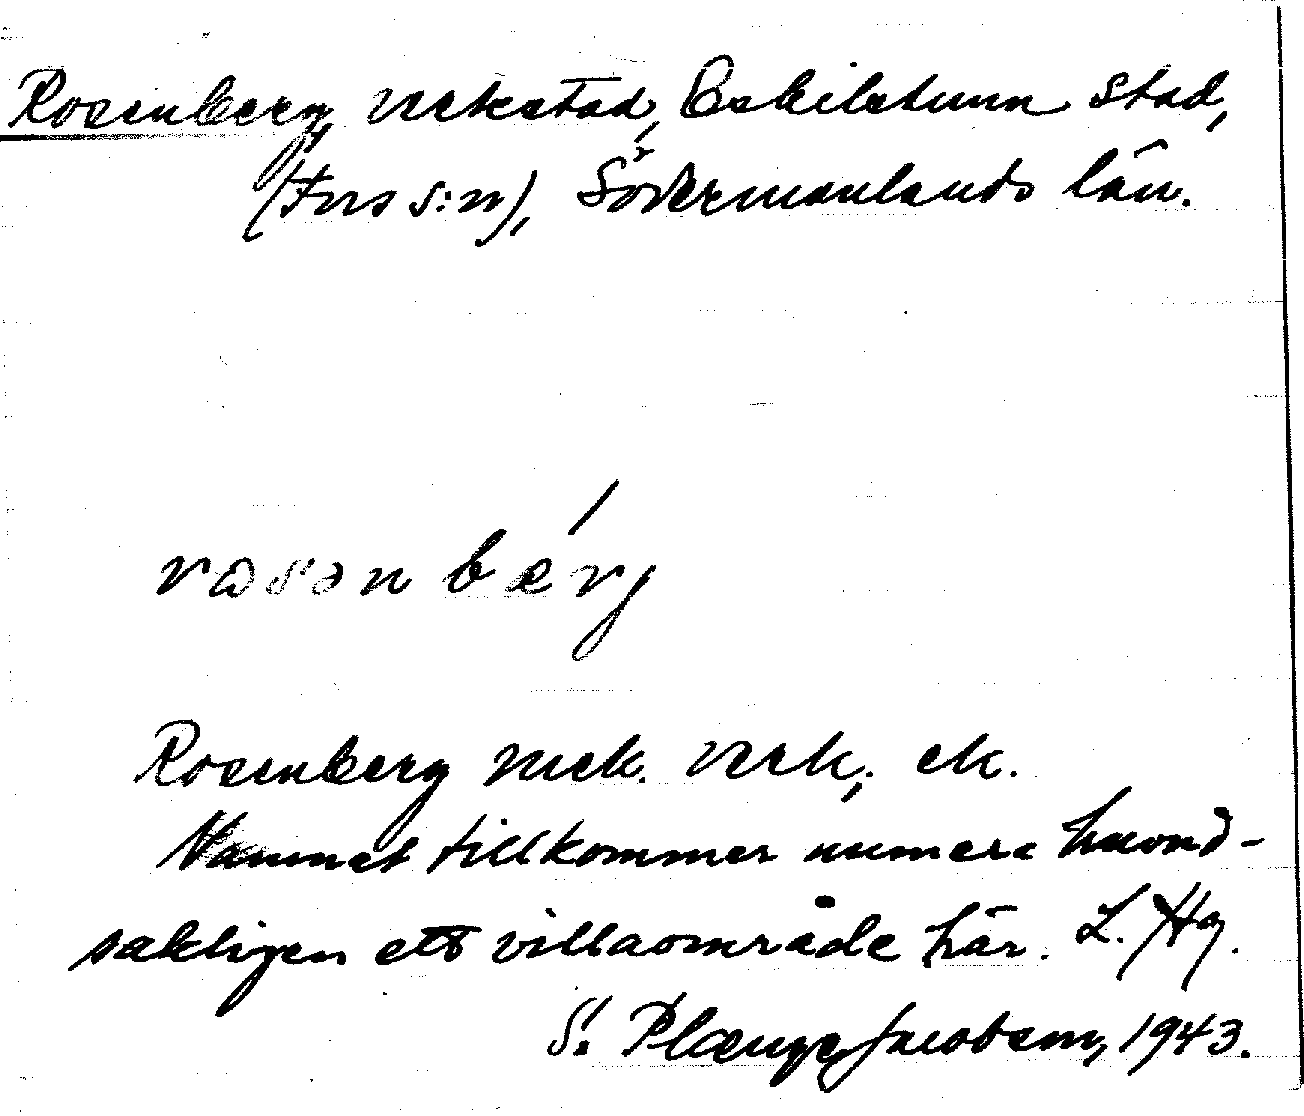 Rosenberg, verkstad, Eskilstuna stad,
(Fors s:n), Södermanlands län.
rosən bærj
Rosenberg mek. verk, ek.
Namnet tillkommer numera huvud-
sakligen ett villaområde här. L. Hg.
S. Plænge Jacobson, 1943.